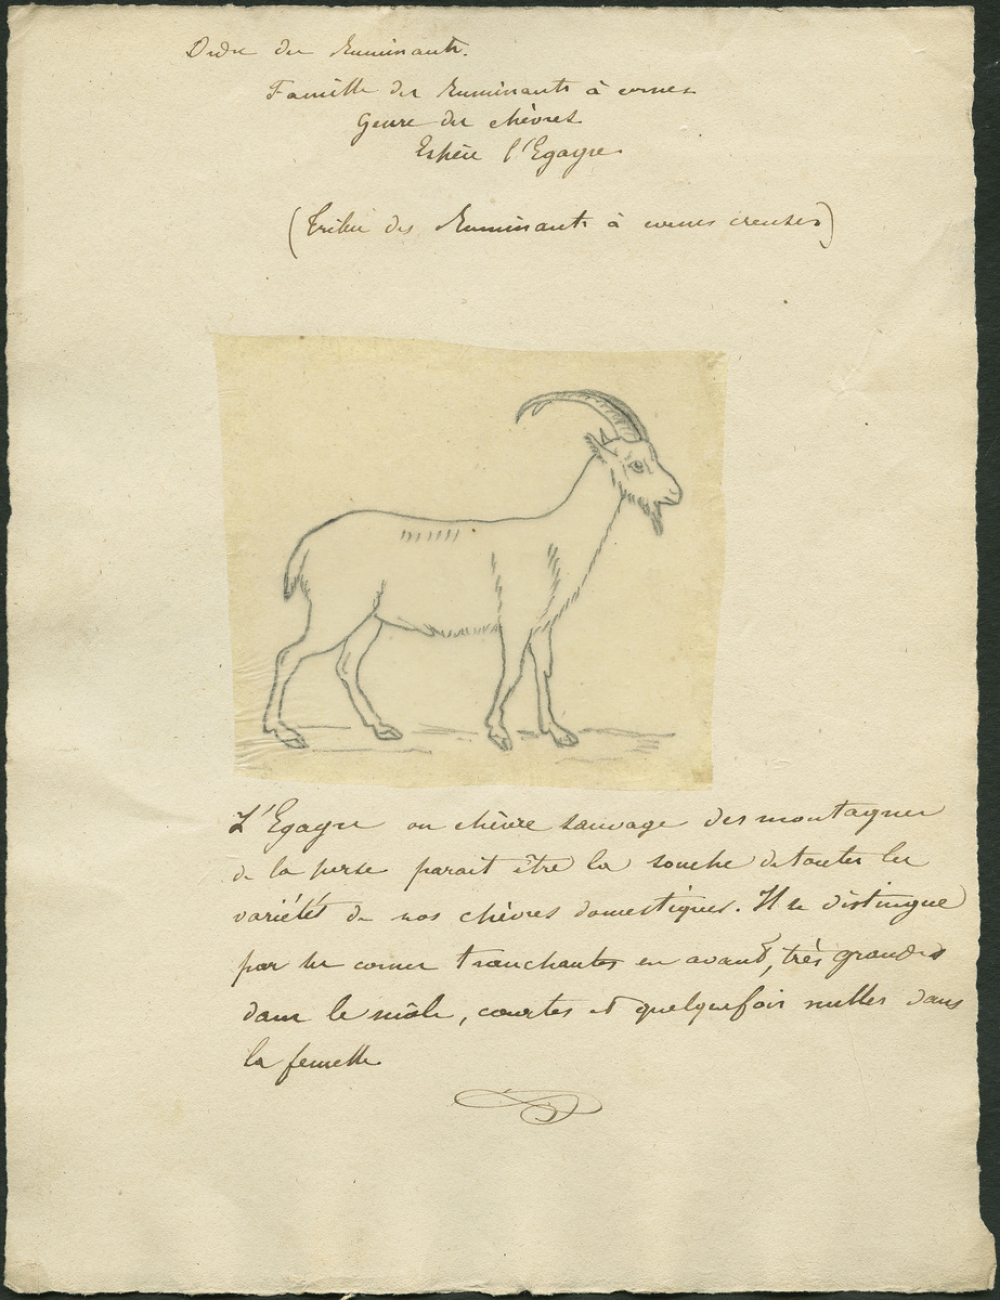 Ordre des Ruminants.
Famille des Ruminants à cornes
Genre des chèvres
Espèce l'Egagre.
(Tribu des Ruminants à cornes creuses)
L'Egagre ou chèvre sauvage des montagnes
de la perse parait être la souche de toutes les
variétés de nos chèvres domestiques. Il se distingue
par les cornes tranchantes en avant, très grandes
dans le mâle, courtes et quelquefois nulles dans
la femelle